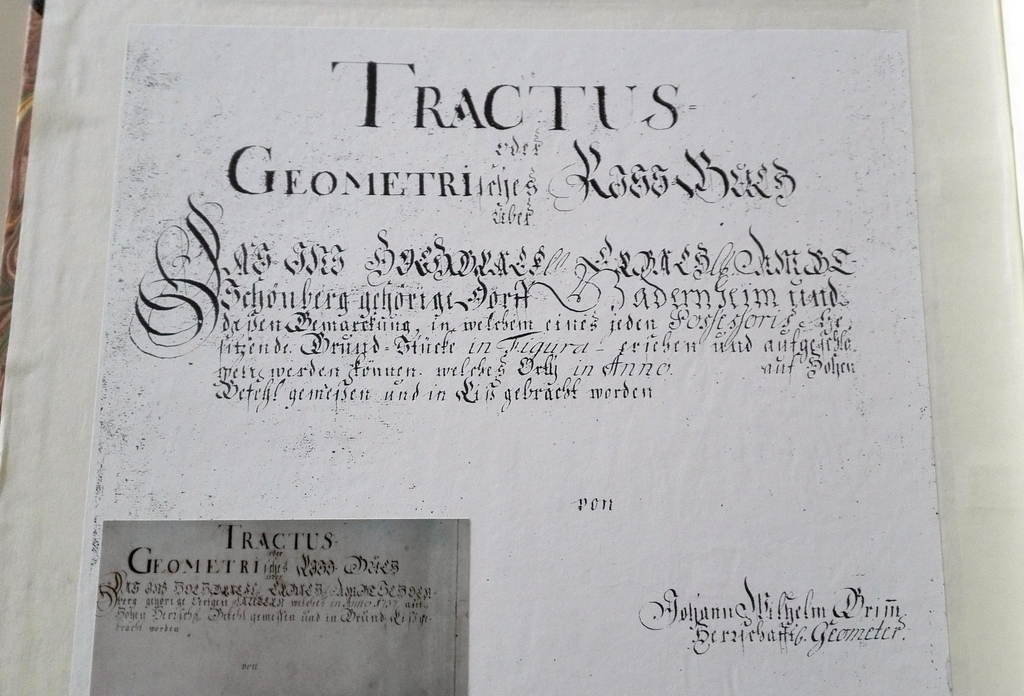 TRACTUS-
oder
GEOMETRIsches Riss Buch
über
Das ins Hochgräffl. Erbachl. Ambt
Schönberg gehörige Dorff Gadernheim und
deßen Gemarckung, in welchem eines jeden Possessoris be-
sitzende Grund-Stücke in Figura ersehen und aufgeschla-
gen werden können. welches Orth in Anno. auf Hohen
Befehl gemeßen und in Riß gebracht worden
von
Johann Wilhelm Grim̅
Herrschafftl. Geometer.
TRACTUS-
oder
GEOMETRIsches Riss Buch
über
Das ins Hochgräffl. Erbachl. Ambt Schön-
berg gehörige welches in Anno 1757 auf
Hohen Herrsch. Befehl gemeßen und in Grund Riß ge-
bracht worden
von